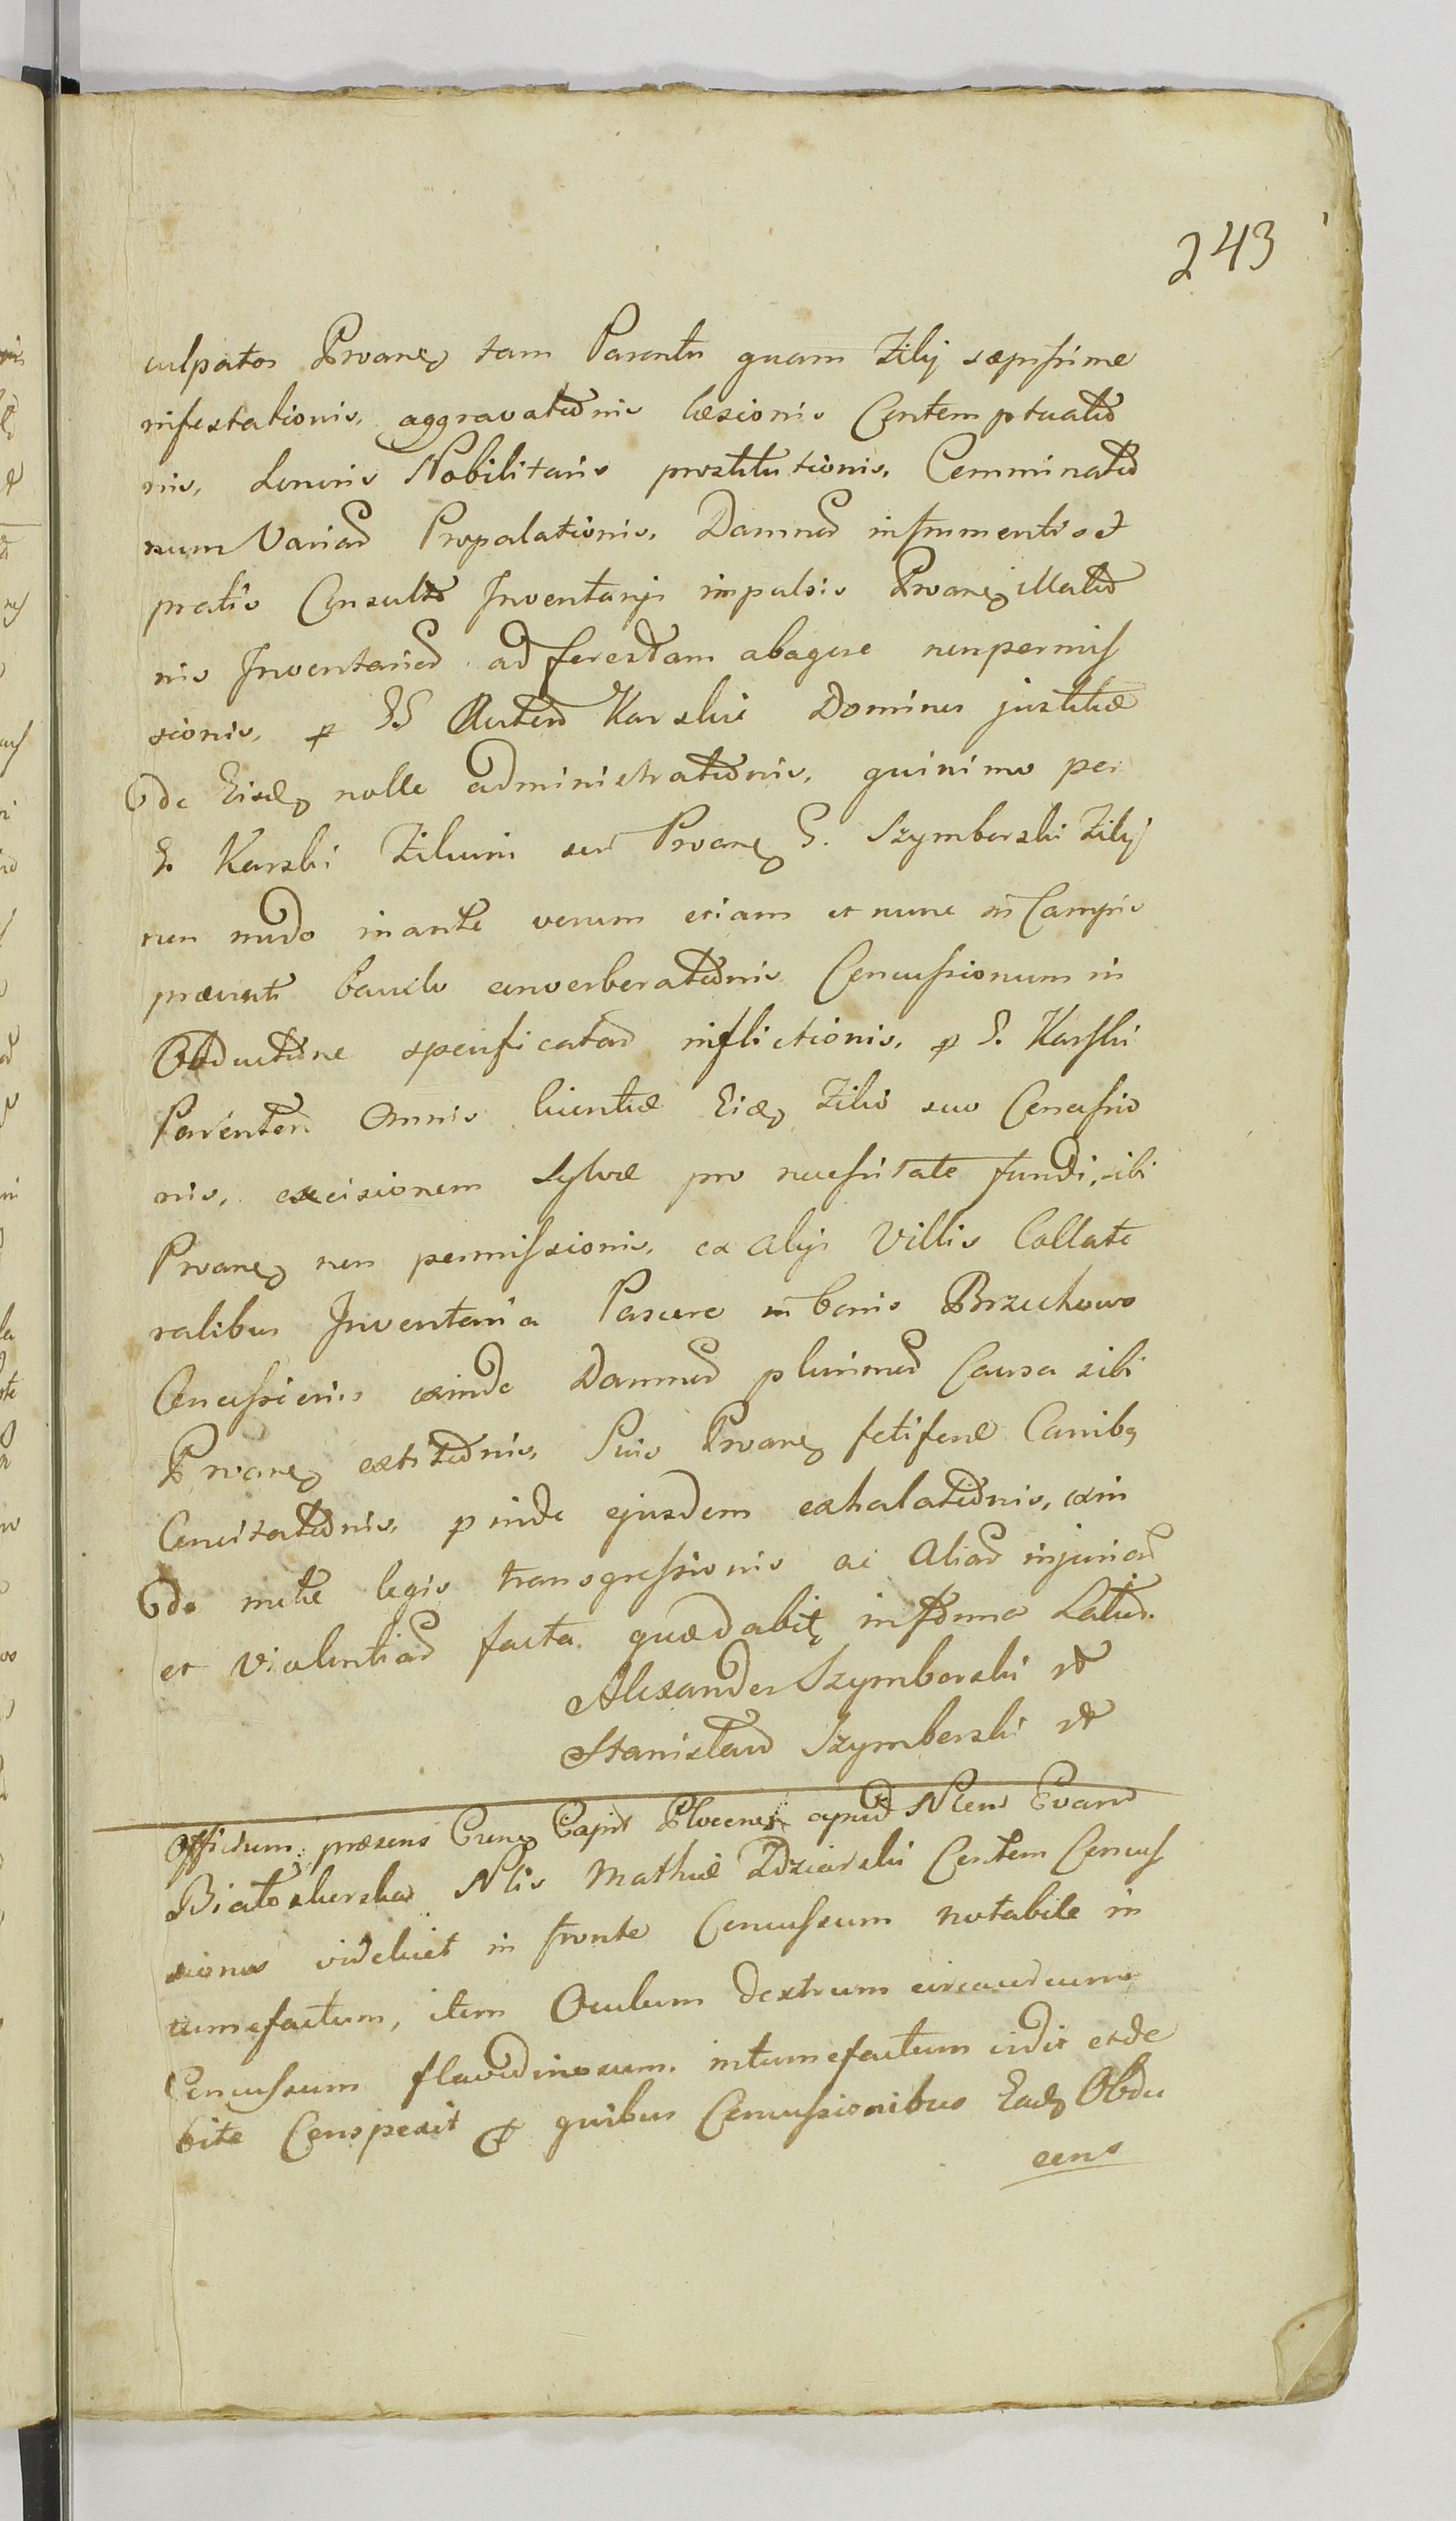 243
culpatos Proane tam Parentis quam Filij sæpissime
infestationis, aggravatõnis læsionis Contemptuatio
nis, honoris Nobilitaris prostitutionis, Comminatio
num Variar Propalationis, Damnor in frumentis et
pratis Consulto Inventarijs impulsis Proane illatio
nis Inventarior ad forestam abagere nonpermis
sionis, p GG Autem Karskie Dominos justitiæ
de Eisdem nolle administratõnis, quinimo per
G. Karski Filium sur Proane G. Szymborski Filij
non modo in ante verum etiam et nunc in Campis
præventi baculo converberatõnis Concussionum in
Obductione specificatar inflictionis, p G. Karski
Parentem Omnis licentiæ Eidem Filio suo Concessio
nis, excisionem Sylvæ pro necessitate fundi, sibi
Proane non permissionis, ex alijs Villis Collate
ralibus Inventaria Pascere in bonis Brzechowo
Concessionis exinde Damnor plurimor Causa sibi
Proane extitõnis, Suis Proane fetifere Canibq
Concitatõnis, p inde ejusdem exhalatõnis, exin
de mete legis transgressionis ac Aliar injuriar
et violentiar facta. quæ dabit in forma Latior.
Alexander Szymborski et
Stanislaus Szymborski et
Officium præsens Crense Capit Plocense apud Nlem Evam
Białoskorska Nlis Mathiæ Zdziarski Contem Concus
siones videlicet in fronte Concussum notabile in
tumefactum, item Oculum dextrum circaudcumq
Concussum flavedinosum, intumefactum vidit et de
bite Conspexit p quibus Concussionibus Eadem Obdu
cens